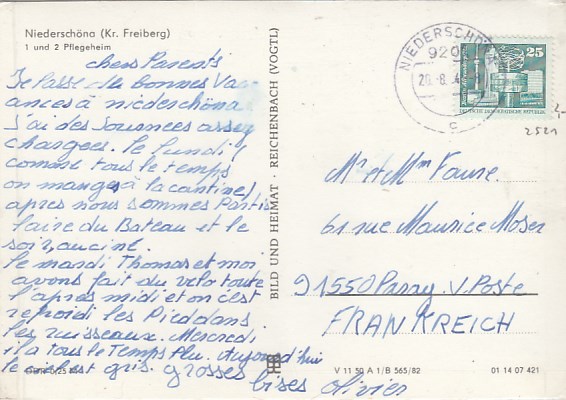 Niederschöna (Kr. Freiberg)
1 und 2 Pflegeheim
chers Parents
Je Passe de bonnes Vac
ances à niederschöna
J'ai des Journées assez
chargées. le lundi
comme tous le temps
on manges à la cantine,
apres nous sommes Partis
faire du Bateau et le
soir, au ciné.
le mardi Thomas et moi
avons fait du velo toute
l'apres midi et on c'est
refroidi les Pieds dans
les ruisseaux. Mercredi
il a tous le Temps Plu. Aujourd'hui
le ciel est gris. grosses bises Olivier
BILD UND HEIMAT · REICHENBACH (VOGTL)
NIEDERSCHÖNA
920
20.-8.
c
25
DEUTSCHE DEMOKRATISCHE REPUBLIK
2521
Mr et Mm Faure.
61 rue Maurice Moser
91550 Paray. V. Poste
FRANKREICH
V 11 50 A 1/B 565/82
01 14 07 421